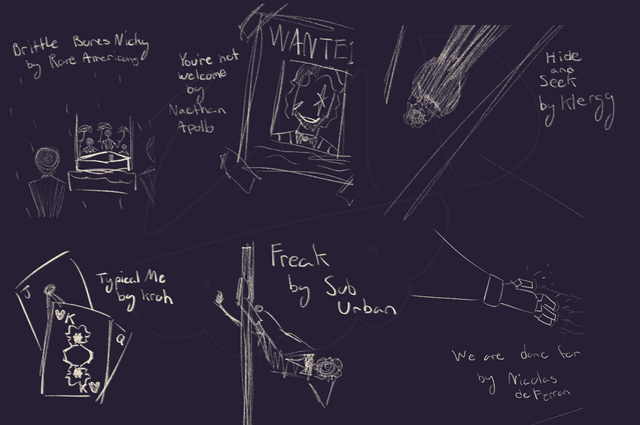 Brittle Bones Nicky
by Rare Americans
You're not
welcome
by
Naethan
Apollo
WANTED
Hide
and
Seek
by Klergy
J
K
Q
K
Typical Me
by kroh
Freak
by Sub
Urban
We are done for
by Nicolas
de Ferran